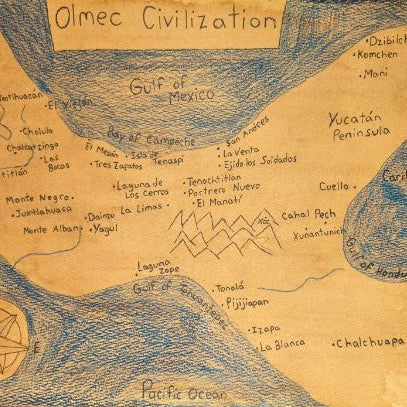 Olmec Civilization
•Dzibilch
•Komchen
•Mani
Gulf of
Mexico
El Viejón
Yucatán
Peninsula
•Cholula
Chalcatzingo
•Las
Bocas
titlán
Bay of Campeche
El Mesón
•Tres Zapotes
Tenaspi
San Andres
•La Venta
•Ejido los Soldados
•Laguna de
Los Cerros
Tenochtitlan
•Portrero Nuevo
•El Manatí
Cuello •
Monte Negro •
•Juxtlahuaca
Monte Alban •
•Dainzu
•Yagul
La Limas •
Cahal Pech
Xunantunich
Gulf of Hondu
Laguna
Zope
Gulf of Tehuantepec
•Tonalá
•Pijijiapan
•Izapa
•La Blanca
•Chalchuapa
E
Pacific Ocean